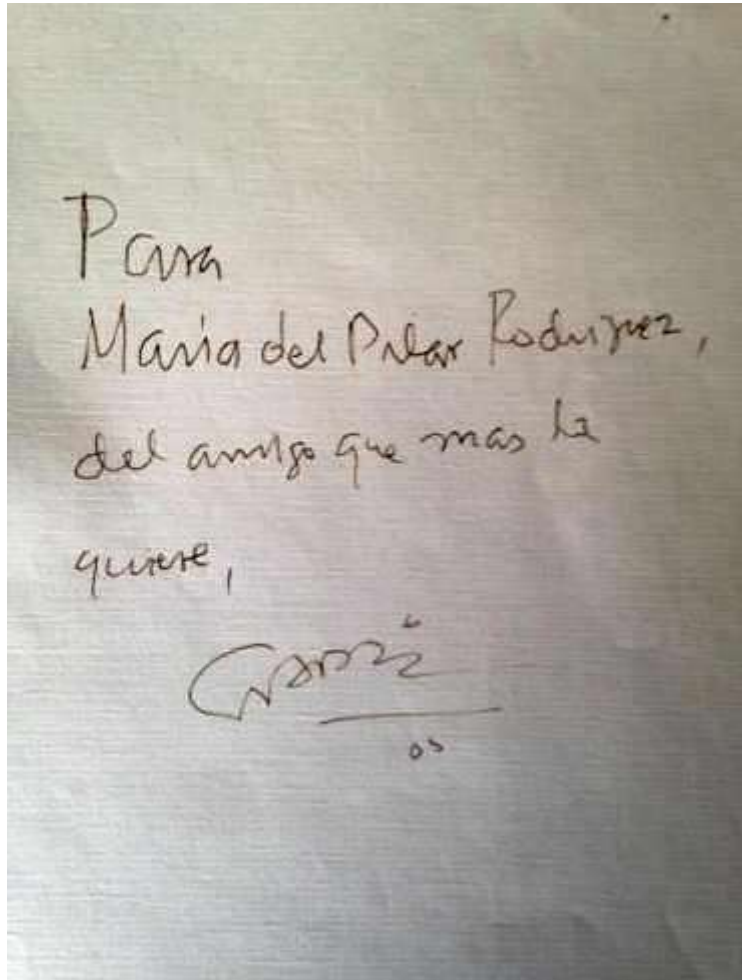 Para
María del Pilar Rodriguez,
del amigo que mas la
quiere,
05